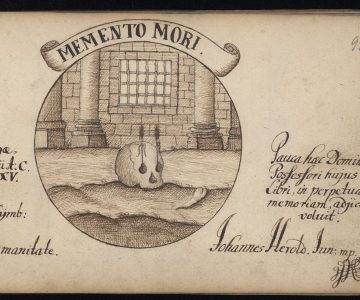 MEMENTO MORI.
9
næ,
XV.
Symb:
manitate.
Pauca hæc Domin
Possessori hujus
Libri, in perpetu
memoriam, adjic
voluit.
Johannes Herold, Jun: mp.